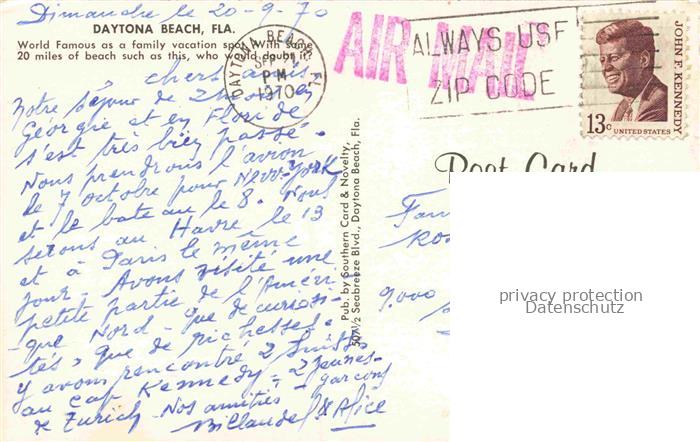 Dimanche le 20-9-70
DAYTONA BEACH, FLA.
World Famous as a family vacation spot. With some
20 miles of beach such as this, who would doubt it?
chers amis,
Notre séjour de 2 mois en
Georgie et en Floride
s'est très bien passé.
Nous prendrons l'avion
le 7 octobre pour New-York
et le bateau le 8. Nous
serons au Havre le 13
et à Paris le même
jour. Avons visité une
petite partie de l'Améri-
que Nord - que de curiosi-
tés, que de richesses.
Y avons rencontré 2 Suisses
au cap Kennedy - 2 jeunes
garçons
de Zurich. Nos amitiés -
& Alice
DAYTONA BEACH FL
SEP
PM
1970
AIR MAIL
ALWAYS USE
ZIP CODE
JOHN F. KENNEDY
13c UNITED STATES
Post Card
Pub. by Southern Card & Novelty,
507½ Seabreeze Blvd., Daytona Beach, Fla.
Fam
9000
privacy protection
Datenschutz